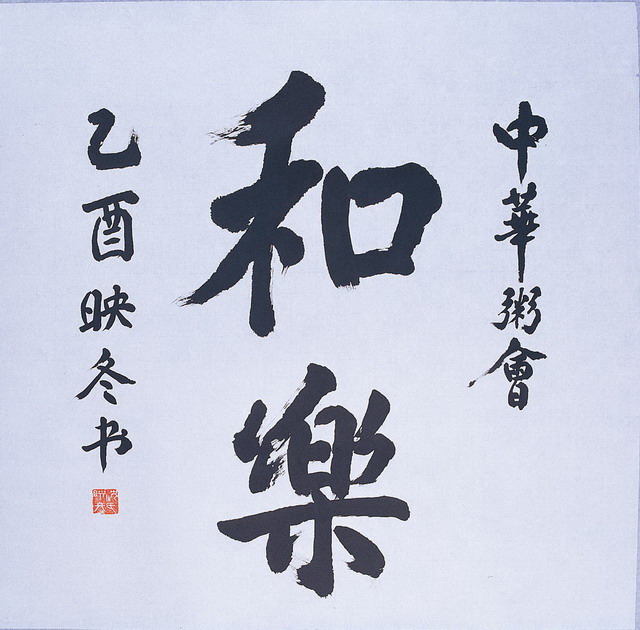 中華粥會
和樂
乙酉映冬书